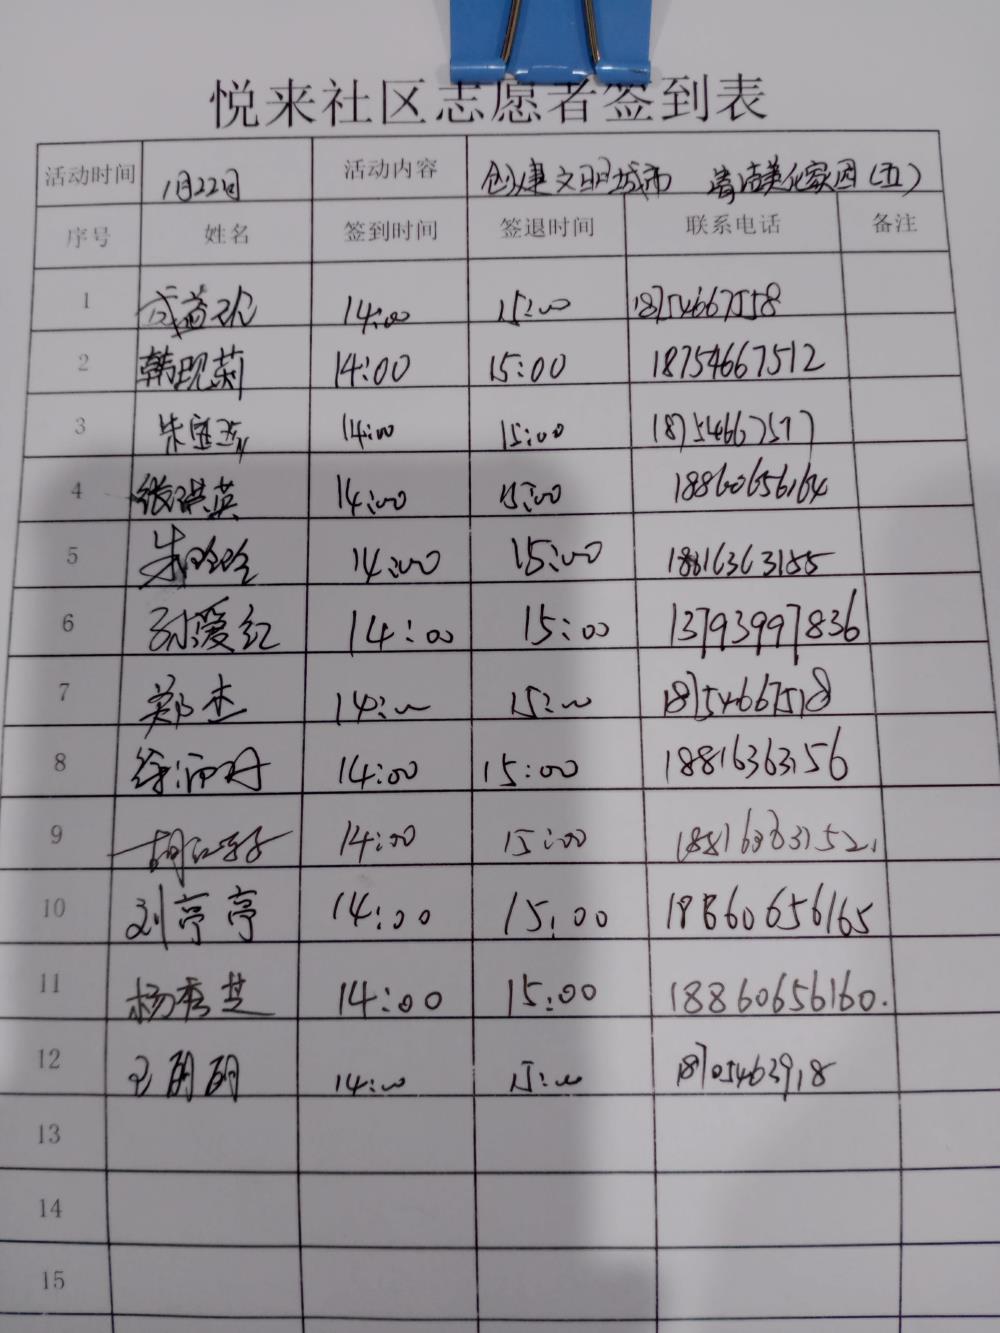 悦来社区志愿者签到表
活动时间 1月22日 活动内容 创建文明城市 清洁美化家园(五)
序号 姓名 签到时间 签退时间 联系电话 备注
1 14:00 15:00 18754667558
2 韩现莉 14:00 15:00 18754667512
3 朱 14:00 15:00 18754667577
4 张洪英 14:00 15:00 18860656164
5 朱玲玲 14:00 15:00 18816363155
6 孙爱红 14:00 15:00 13793997836
7 郑杰 14:00 15:00 18754667518
8 徐 14:00 15:00 18816363156
9 胡 14:00 15:00 18816363152.
10 刘亭亭 14:00 15:00 18860656165
11 杨秀芝 14:00 15:00 18860656160.
12 王 14:00 15:00 18705463918
13
14
15